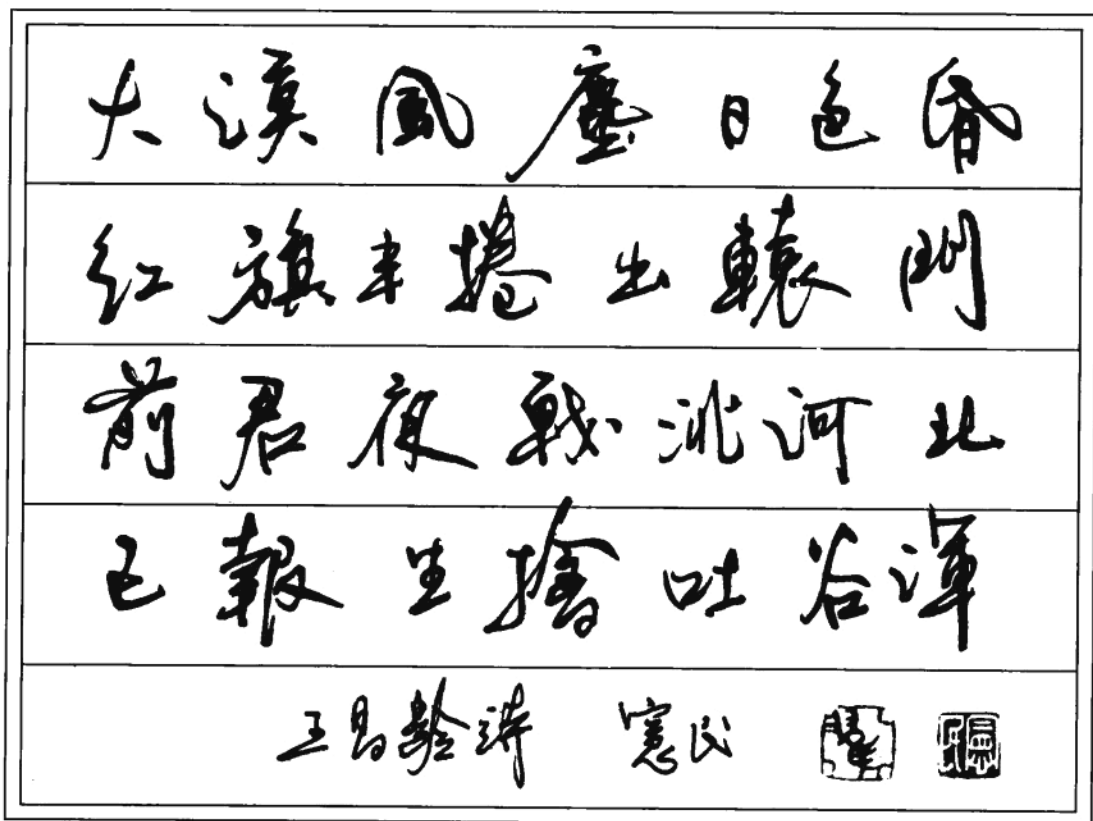 大漠風塵日色昏
紅旗半捲出轅門
前君夜戰洮河北
已報生擒吐谷渾
王昌齡詩 憲民